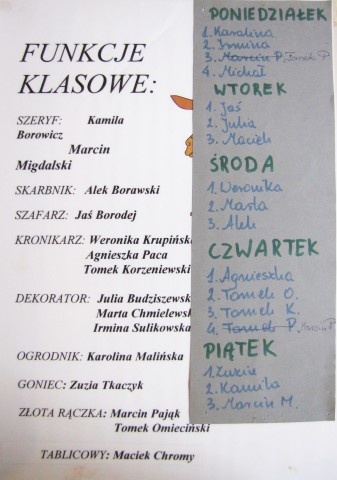 FUNKCJE
KLASOWE:
SZERYF: Kamila
Borowicz
Marcin
Migdalski
SKARBNIK: Alek Borawski
SZAFARZ: Jaś Borodej
KRONIKARZ: Weronika Krupińsk
Agnieszka Paca
Tomek Korzeniewski
DEKORATOR: Julia Budziszewsk
Marta Chmielewsk
Irmina Sulikowska
OGRODNIK: Karolina Malińska
GONIEC: Zuzia Tkaczyk
ZŁOTA RĄCZKA: Marcin Pająk
Tomek Omieciński
TABLICOWY: Maciek Chromy
PONIEDZIAŁEK
1. Karolina
2. Irmina
3. Marcin P. Tomek P.
4. Michał
WTOREK
1. Jaś
2. Julia
3. Maciek
ŚRODA
1. Weronika
2. Marta
3. Alek
CZWARTEK
1. Agnieszka
2. Tomek O.
3. Tomek K.
4. Tomek P. Marcin P.
PIĄTEK
1. Zuzia
2. Kamila
3. Marcin M.